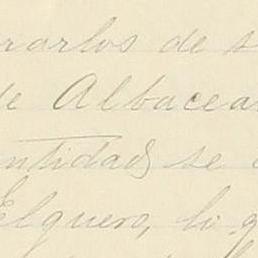 rarlos de s
de Albacea
ntidad se
Elguero, li q